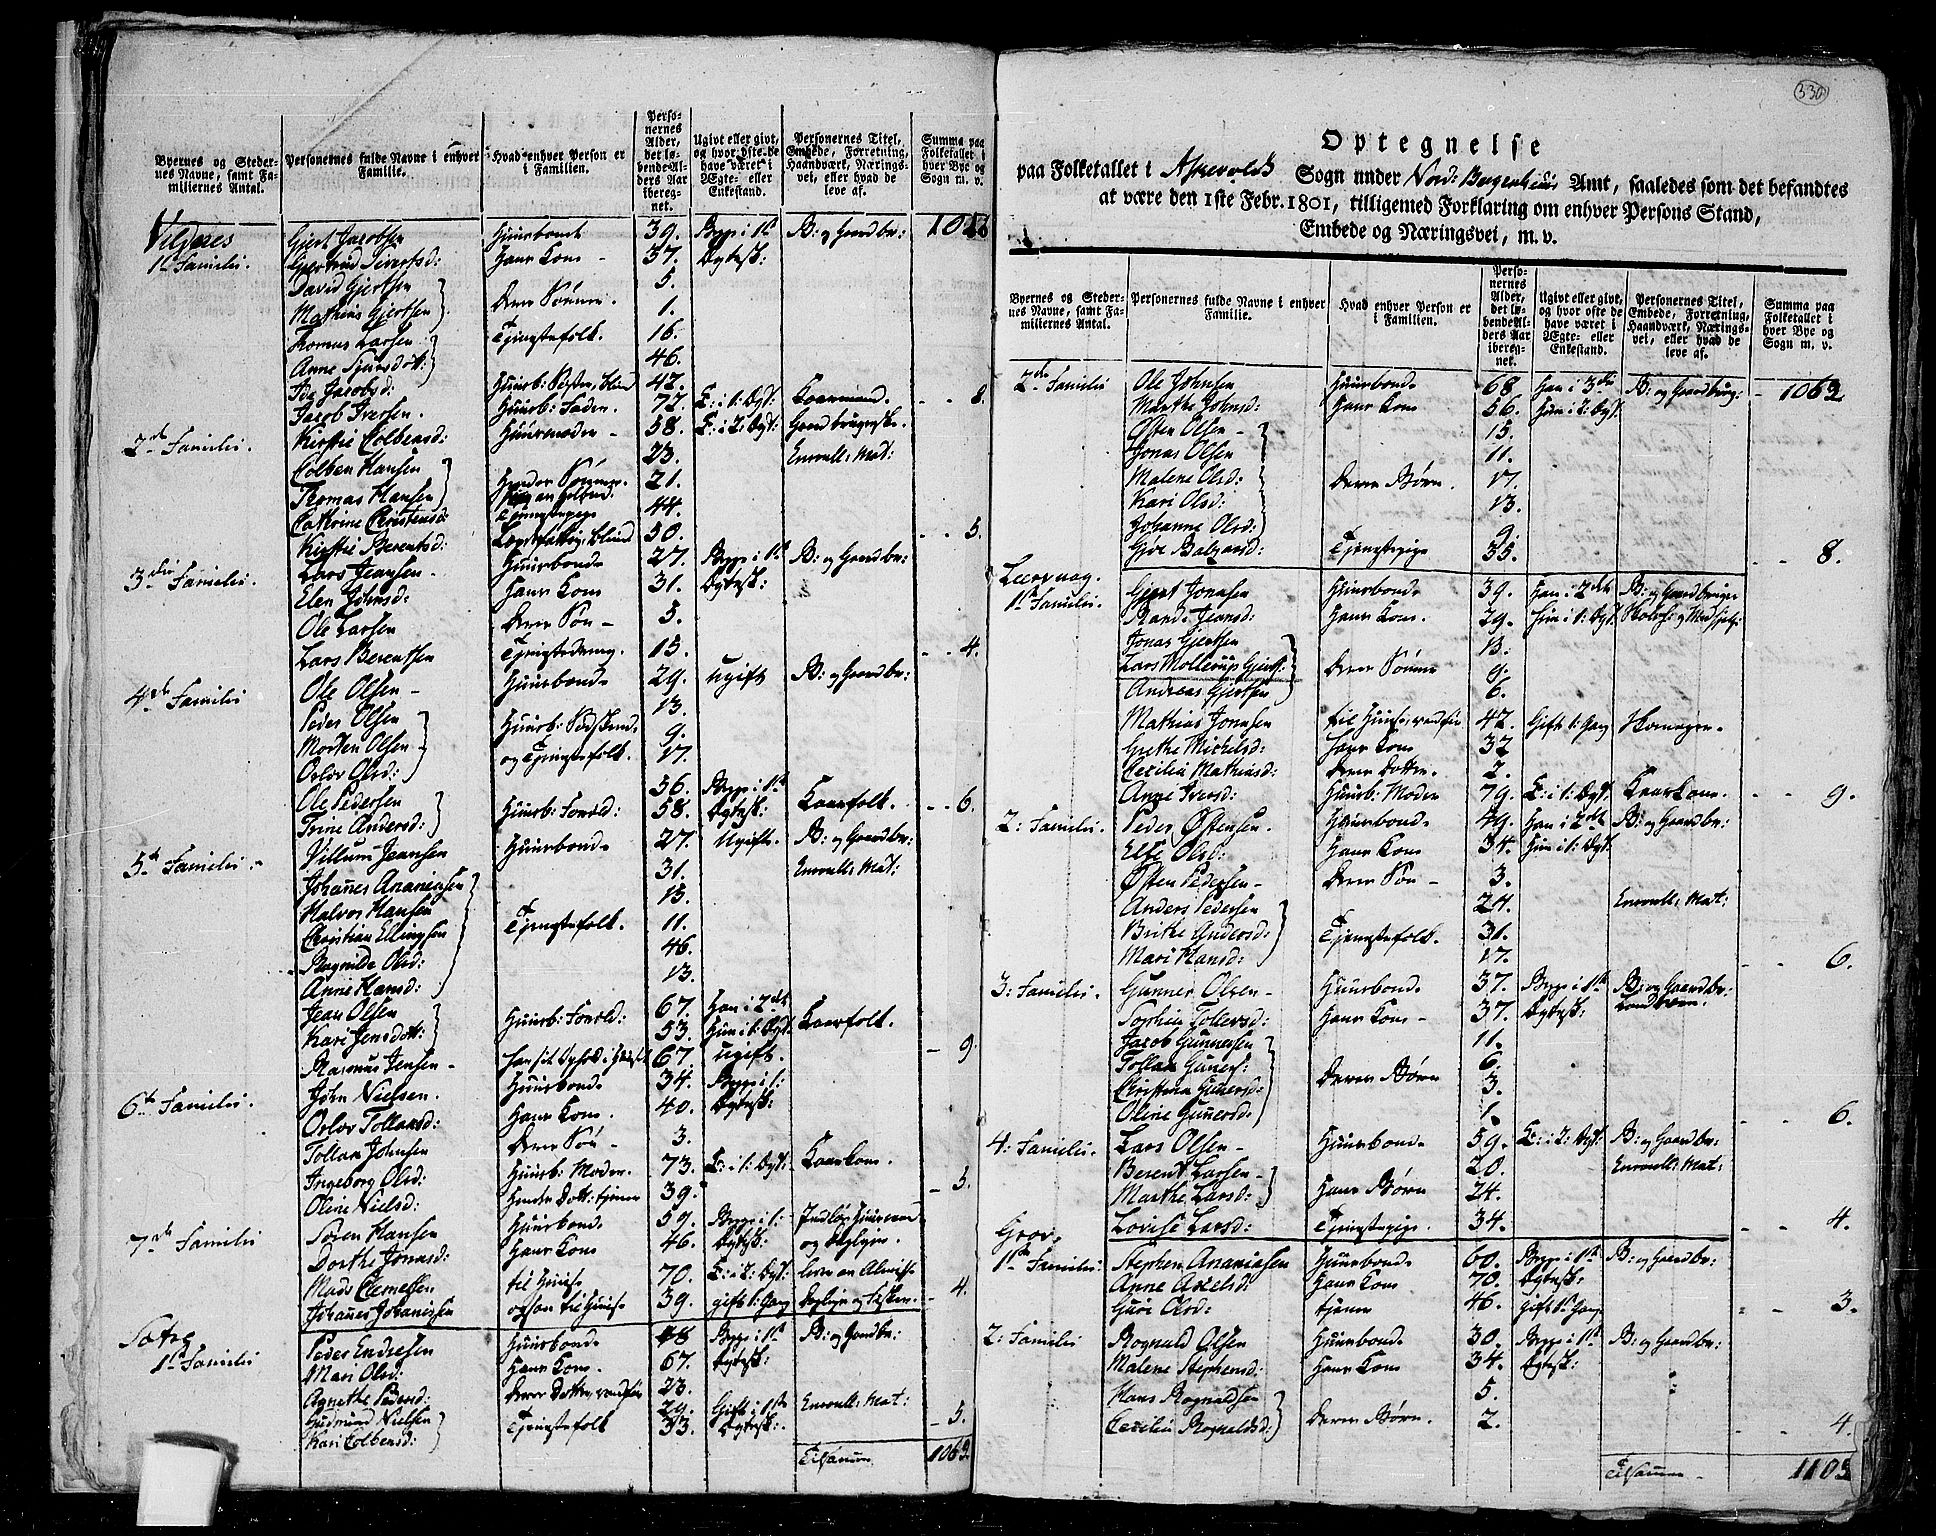 Byernes og Steder-
nes Navne, samt Fa-
miliernes Antal.
Personernes fulde Navne i enhver
Familie.
Hvad enhver Person er
i Familien.
Perso-
nernes
Alder,
det lø-
bende Al-
ders Aar
iberegnet.
Ugivt eller givt,
og hvor ofte de
have været i
Ægte- eller
Enkestand.
Personernes Titel,
Embede, Forretning,
Haandværk, Nærings-
vei, eller hvad de
leve af.
Summa paa
Folketallet i
hver Bye og
Sogn m. v.
Vilnæs
1te Familie. Gjert Jacobsen Huusbonde 39. Begge i 1te B: og Gaardbr:
Gjertrud Sivertsd: Hans Kone 37. Ægtesk:
David Gjertsen 5.
Mathias Gjertsen Deres Sønner. 1.
Thomas Larsen Tjenestefolk. 16.
Anne 46.
Ide Jacobsd: Huusb: Søster, blind 42.
Jacob Iversen. Huusb: Fader. 72. E: i 1: Ægt: Kaarmand. 8.
2de Familie. Kirstie Colbensd: Huusmoder 58. E: i 2: Ægt: Gaardbrugerske
Colben Hansen 23. Enroull: Mat:
Thomas Hansen Hendes Sønner. 21.
Cathrine Christensd: Tjenestepige 44.
Kirstie Berentsd: 50. 5.
3die Familie. Lars Jensen Huusbonde 27. Begge i 1te B: og Gaardbr:
Elen Johnsd: Hans Kone 31. Ægtesk:
Ole Larsen Deres Søn 5.
Lars Berentsen Tjenestedreng. 15. 4.
4de Familie Ole Olsen Huusbonde 29. ugift B: og Gaardbr:
Peder Olsen 13.
Morten Olsen Huusb: Sødskende 9.
Oslov Olsd: og Tjenestefolk. 17.
Ole Pedersen 56. Begge i 1te
Trine Andersd: Huusb: Foreld: 58. Ægtesk: Kaarfolk. 6.
5te Familie Villum Jensen Huusbonde 27. Ugift. B: og Gaardbr:
Johannes Ananiasen 31. Enroull: Mat:
Halvor Hansen 15.
Christian Ellingsen Tjenestefolk. 11.
Ragnilde Olsd: 46.
Anne Hansd: 13.
Jean Olsen 67. Han i 2det
Kari Jensdott: Huusb: Foreld: 53. Hun i 1: Ægt: Kaarfolk.
Rasmus Jensen 67 ugift. 9.
6te Familie. John Nielsen. Huusbonde 34. Begge i 1:
Oslov Tollansd: Hans Kone. 40. Ægtesk:
Tollan Johnsen Deres Søn 3.
Ingeborg Olsd: Huusb: Moder. 73. E: i 1: Ægt: Kaarkone.
Oline Nielsd: Hendes Dott: tjener 39. 5.
7de Familie Søren Hansen Huusbonde 59. Begge i 1:
Dorthe Jonasd: Hans Kone 46. Ægtesk:
Mads Clemetsen til Huuse 70. E: i 2: Ægt: lever av Almisse
Johannes Johannessen ogsaa til Huuse 39. gift 1: Gang 4.
Sætre
1te Familie Peder Endresen Huusbonde 78 Begge i 1te B: og Gaardbr:
Mari Olsd: Hans Kone. 67. Ægtesk:
Agnethe Pedersd: 23.
Gudmund Nielsen 29. Gift i 1te Enroull: Mat:
Kari Colbensd: Tjenestefolk 33. Ægtesk: 5.
Tilsammen 1062.
330
Optegnelse
paa Folketallet i Askevolds Sogn under Nord: Bergenhuus Amt, saaledes som det befandtes
at være den 1ste Febr. 1801, tilligemed Forklaring om enhver Persons Stand,
Embede og Næringsvei, m. v.
Byernes og Steder-
nes Navne, samt Fa-
miliernes Antal.
Personernes fulde Navne i enhver
Familie.
Hvad enhver Person er
i Familien.
Perso-
nernes
Alder,
det lø-
bende Al-
ders Aar
iberegnet.
Ugivt eller givt,
og hvor ofte de
have været i
Ægte- eller
Enkestand.
Personernes Titel,
Embede, Forretning,
Haandværk, Nærings-
vei, eller hvad de
leve af.
Summa paa
Folketallet i
hver Bye og
Sogn m. v.
2de Familie Ole Johnsen Huusbonde 68 Han i 3die B: og Gaardbrug: 1062
Marthe Johnsd: Hans Kone 56. Hun i 2: Ægt
Østen Olsen 15.
Jonas Olsen 11.
Malene Olsd: Deres Børn. 17.
Kari Olsd: 13.
Johanne Olsd: 9.
Gjøe Tjenestepige 35. 8.
Leervaag.
1te Familie. Gjert Jonasen Huusbonde 39. Han i 2det B: og Gaardbruger
Rande Jensd: Hans Kone. 29. Hun i 1: Ægt
Jonas Gjertsen 13.
Lars Mollerup Gjerts: Deres Sønner 9.
Andreas Gjertsen 6.
Mathias Jonasen 42. Gift 1: Gang
Grethe Michelsd: Hans Kone 32
Cecilia Mathiasd: Deres Dotter. 2.
Anne Iversd: Huusb: Moder 79. E: i 1: Ægt Kaarkone. 9.
2: Familie. Peder Østensen. Huusbonde 49. Han i 2det B: og Gaardbr:
Elsi Olsd: Hans Kone 34. Hun i 1: Ægt
Østen Pedersen Deres Søn 3.
Anders Pedersen 24. Enroull: Mat:
Brithe Andersd: Tjenestefolk. 31.
Mari Hansd: 17. 6.
3: Familie. Gunner Olsen Huusbonde 37. Begge i 1te B: og Gaardbr:
Sophia Tollevsd: Hans Kone 37. Ægtesk:
Jacob Gunnersen 11.
Tollan Guners: 6.
Christina Gunersd: Deres Børn 3.
Oline Gunersd: 1. 6.
4: Familie. Lars Olsen Huusbonde 59. E: i 2: Ægt: B: og Gaardbr:
Berent Larsen 20. Enroull: Mat:
Marthe Larsd: Hans Børn 24.
Lovise Larsd: Tjenestepige. 34. 4.
Grov.
1te Familie Stephen Ananiasen Huusbonde 60. Begge i 1te B: og Gaardbr:
Anne Axelsd: Hans Kone 70. Ægtesk:
Guri Olsd: tjener 46. Gift 1: Gang 3.
2: Familie Rognald Olsen Huusbonde 30. Begge i 1te B: og Gaardbr:
Malene Stephensd: Hans Kone 34. Ægtesk:
Hans Rognaldsen 5.
Cecilia Rognaldsd: Deres Børn. 2. 4.
Tilsammen 1105